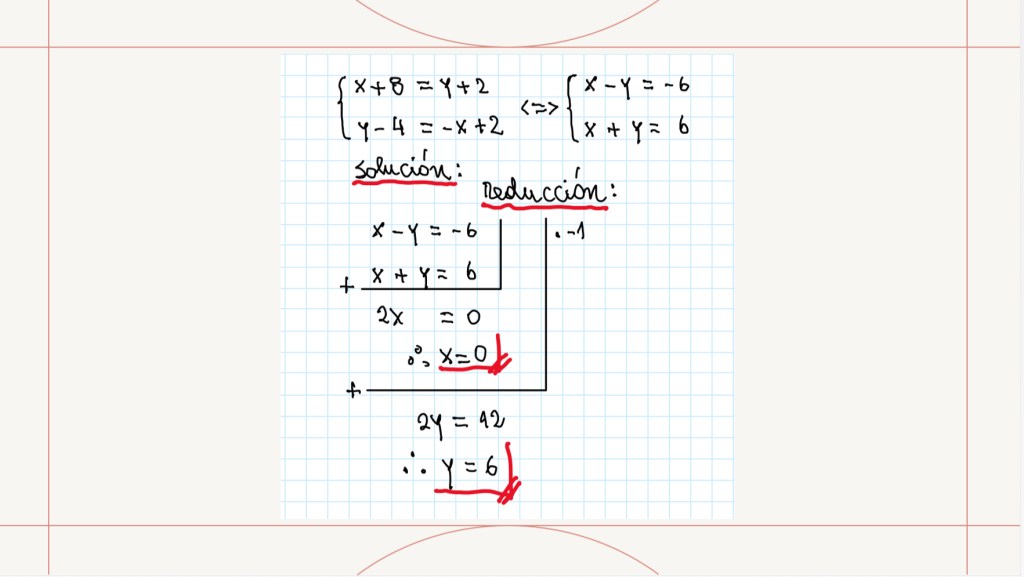 x+8 = y+2 <=> x-y = -6
y-4 = -x+2 x+y = 6
Solución:
Reducción:
x-y = -6 .-1
+ x+y = 6
2x = 0
∴ x=0
+
2y = 12
∴ y = 6